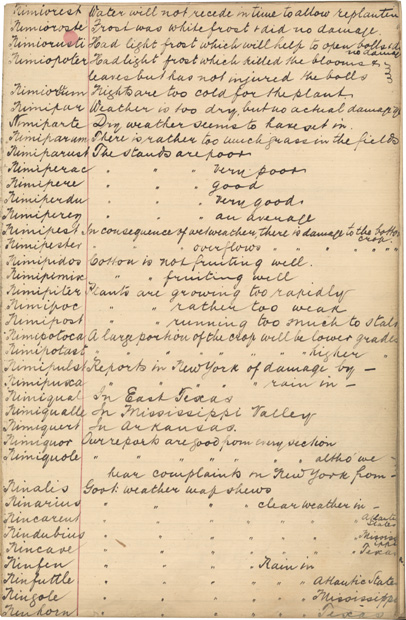 Nimiorest Water will not recede in time to allow replanten
Nimioroste Frost was white frost & did no damage.
Nimiorusti Had light frost which will help to open bolls & do
no damage
Nimiopoter Had light frost which killed the blooms &
leaves but has not injured the bolls
Nights are too cold for the plant
Nimipar Weather is too dry, but no actual damage yet
Nimiparte Dry weather seems to have set in.
Nimiparum There is rather too much grass in the fields
Nimiparust The stands are poor
Nimiperac " " " very poor
Nimipere " " " good
Nimiperdu " " " very good
Nimiperen " " " an average
Nimipest In consequence of wet weather, there is damage to the cotton
crop.
Nimipester " " overflows " " " " "
Nimipidos Cotton is not fruiting well.
Nimipimix " " fruiting well
Nimipiter Plants are growing too rapidly
Nimipoc " " rather too weak
Nimipost " " running too much to stalk
Nimipotoca A large portion of the crop will be lower grades
Nimipotast " " " " " " " higher "
Nimipulst Reports in New York of damage by —
Nimipusca " " " " rain in —
Nimiqual In East Texas
Nimiqualle In Mississippi Valley
Nimiquert In Arkansas.
Nimiquor Our reports are good from every section
Nimiquole " " " " " " altho' we
hear complaints in New York from —
Ninalis Govt. weather map shews
Ninarius " " " " clear weather in —
Nincarent " " " " " " " Atlantic
States
Nindubius " " " " " " " Mississ
ippi
Nincave " " " " " " " Texas
Ninfen " " " " Rain in
Ninfuttle " " " " " " Atlantic State
Ningole " " " " " " Mississippi
Ninhorn " " " " " " Texas